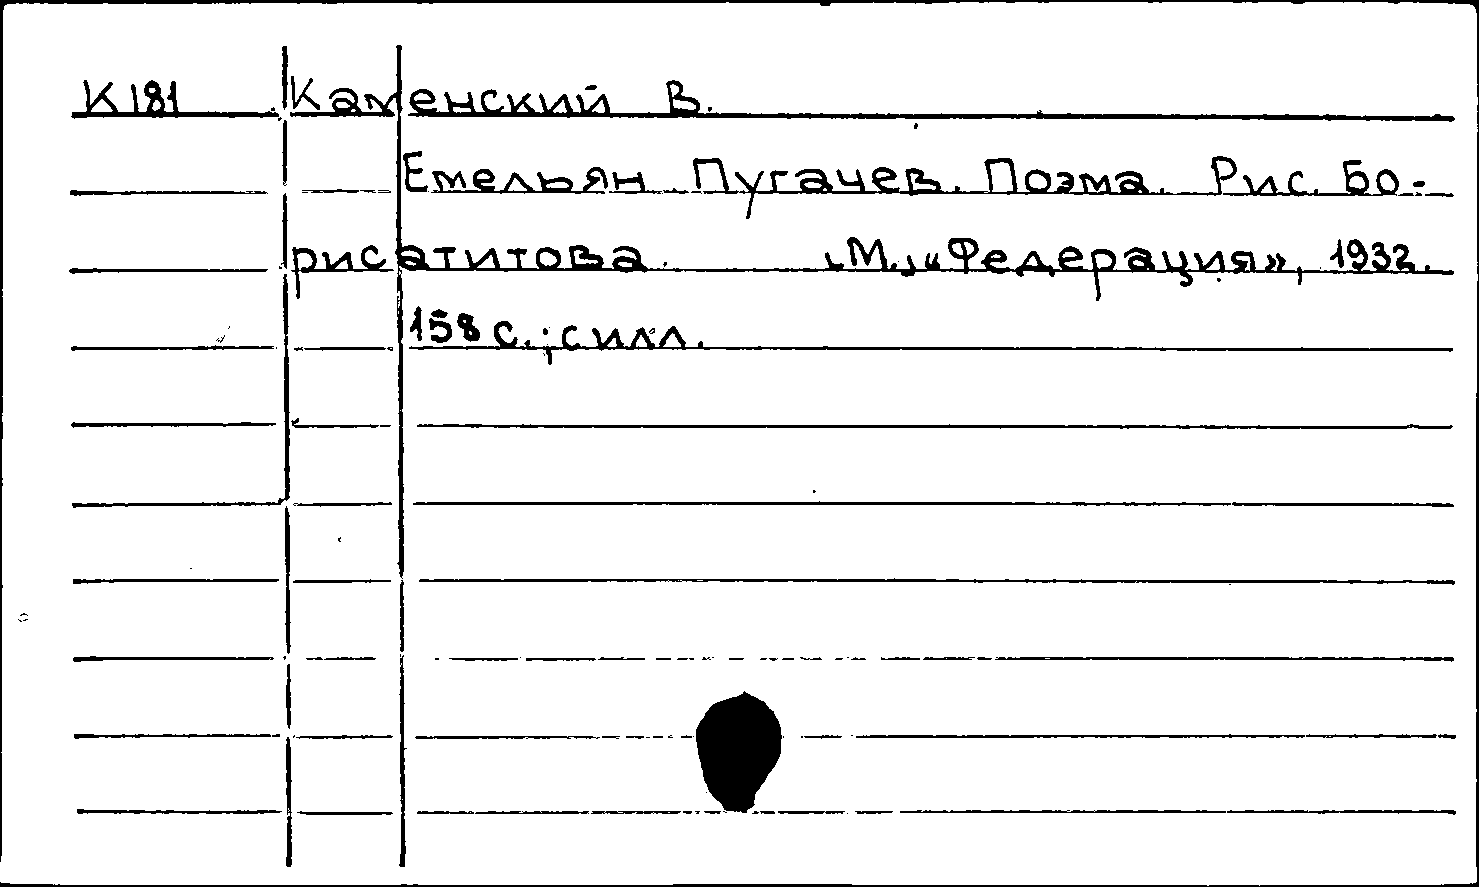 К181 Каменский В.
Емельян Пугачев. Поэма. Рис. Бо-
рисатитова. М., «Федерация», 1932.
158 с.; силл.